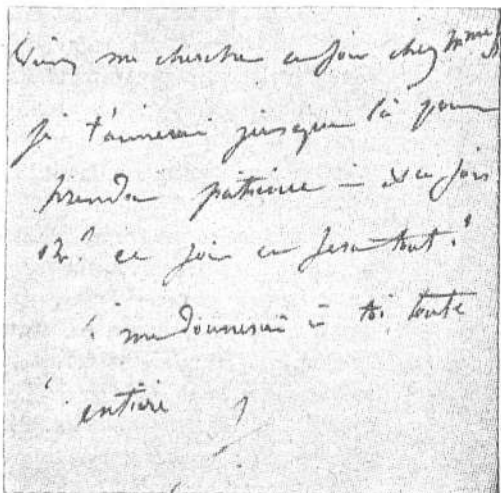 Viens me chercher ce soir chez Mme
je t'aimerai jusque là pour
prendre patience – et ce soir
oh! ce soir ce sera tout!
me donnerai à toi toute
entière